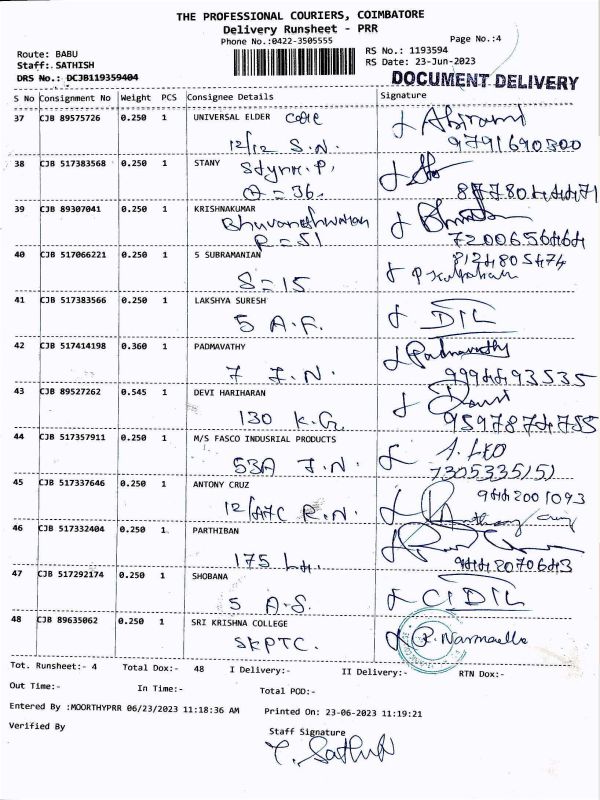 THE PROFESSIONAL COURIERS, COIMBATORE
Delivery Runsheet - PRR
Phone No.:0422-3505555 Page No.:4
Route: BABU RS No.: 1193594
Staff: SATHISH RS Date: 23-Jun-2023
DRS No.: DCJB119359404 DOCUMENT DELIVERY
S No Consignment No Weight PCS Consignee Details Signature
37 CJB 89575726 0.250 1 UNIVERSAL ELDER care
12/12 S.N. 9791690300
38 CJB 517383568 0.250 1 STANY
θ = 36.
39 CJB 89307041 0.250 1 KRISHNAKUMAR
R = 51 7200656464
40 CJB 517066221 0.250 1 S SUBRAMANIAN 8124805474
S = 15
41 CJB 517383566 0.250 1 LAKSHYA SURESH
5 A.F. DIL
42 CJB 517414198 0.360 1 PADMAVATHY Padmavathy
7 J.N. 9994493535
43 CJB 89527262 0.545 1 DEVI HARIHARAN
130 K.G 9597874755
44 CJB 517357911 0.250 1 M/S FASCO INDUSRIAL PRODUCTS
53A J.N. 7305335151
45 CJB 517337646 0.250 1 ANTONY CRUZ 9442001093
12/47C R.N.
46 CJB 517332404 0.250 1 PARTHIBAN
175 9442070643
47 CJB 517292174 0.250 1 SHOBANA
5 A.S. CIDIL
48 CJB 89635062 0.250 1 SRI KRISHNA COLLEGE
SKPTC.
Tot. Runsheet:- 4 Total Dox:- 48 I Delivery:- II Delivery:- RTN Dox:-
Out Time:- In Time:- Total POD:-
Entered By :MOORTHYPRR 06/23/2023 11:18:36 AM Printed On: 23-06-2023 11:19:21
Verified By Staff Signature